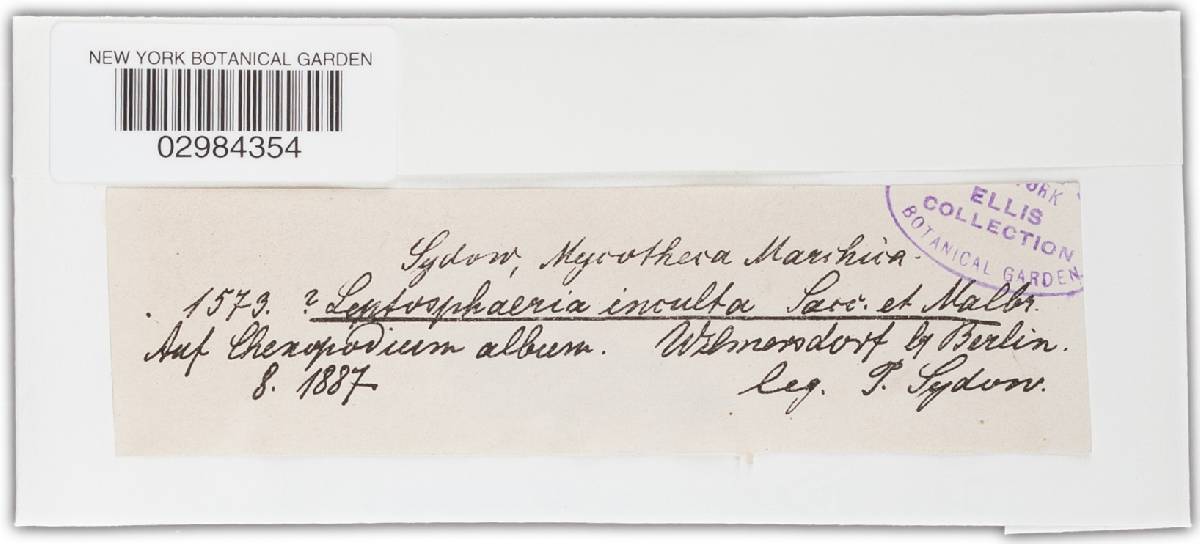 NEW YORK BOTANICAL GARDEN
02984354
YORK
ELLIS
COLLECTION
BOTANICAL GARDEN
Sydow, Mycotheca Marchica.
1573. ? Leptosphaeria inculta Sacc. et Malbr.
Auf Chenopodium album. Wilmersdorf b/ Berlin.
8. 1887
leg. P. Sydow.